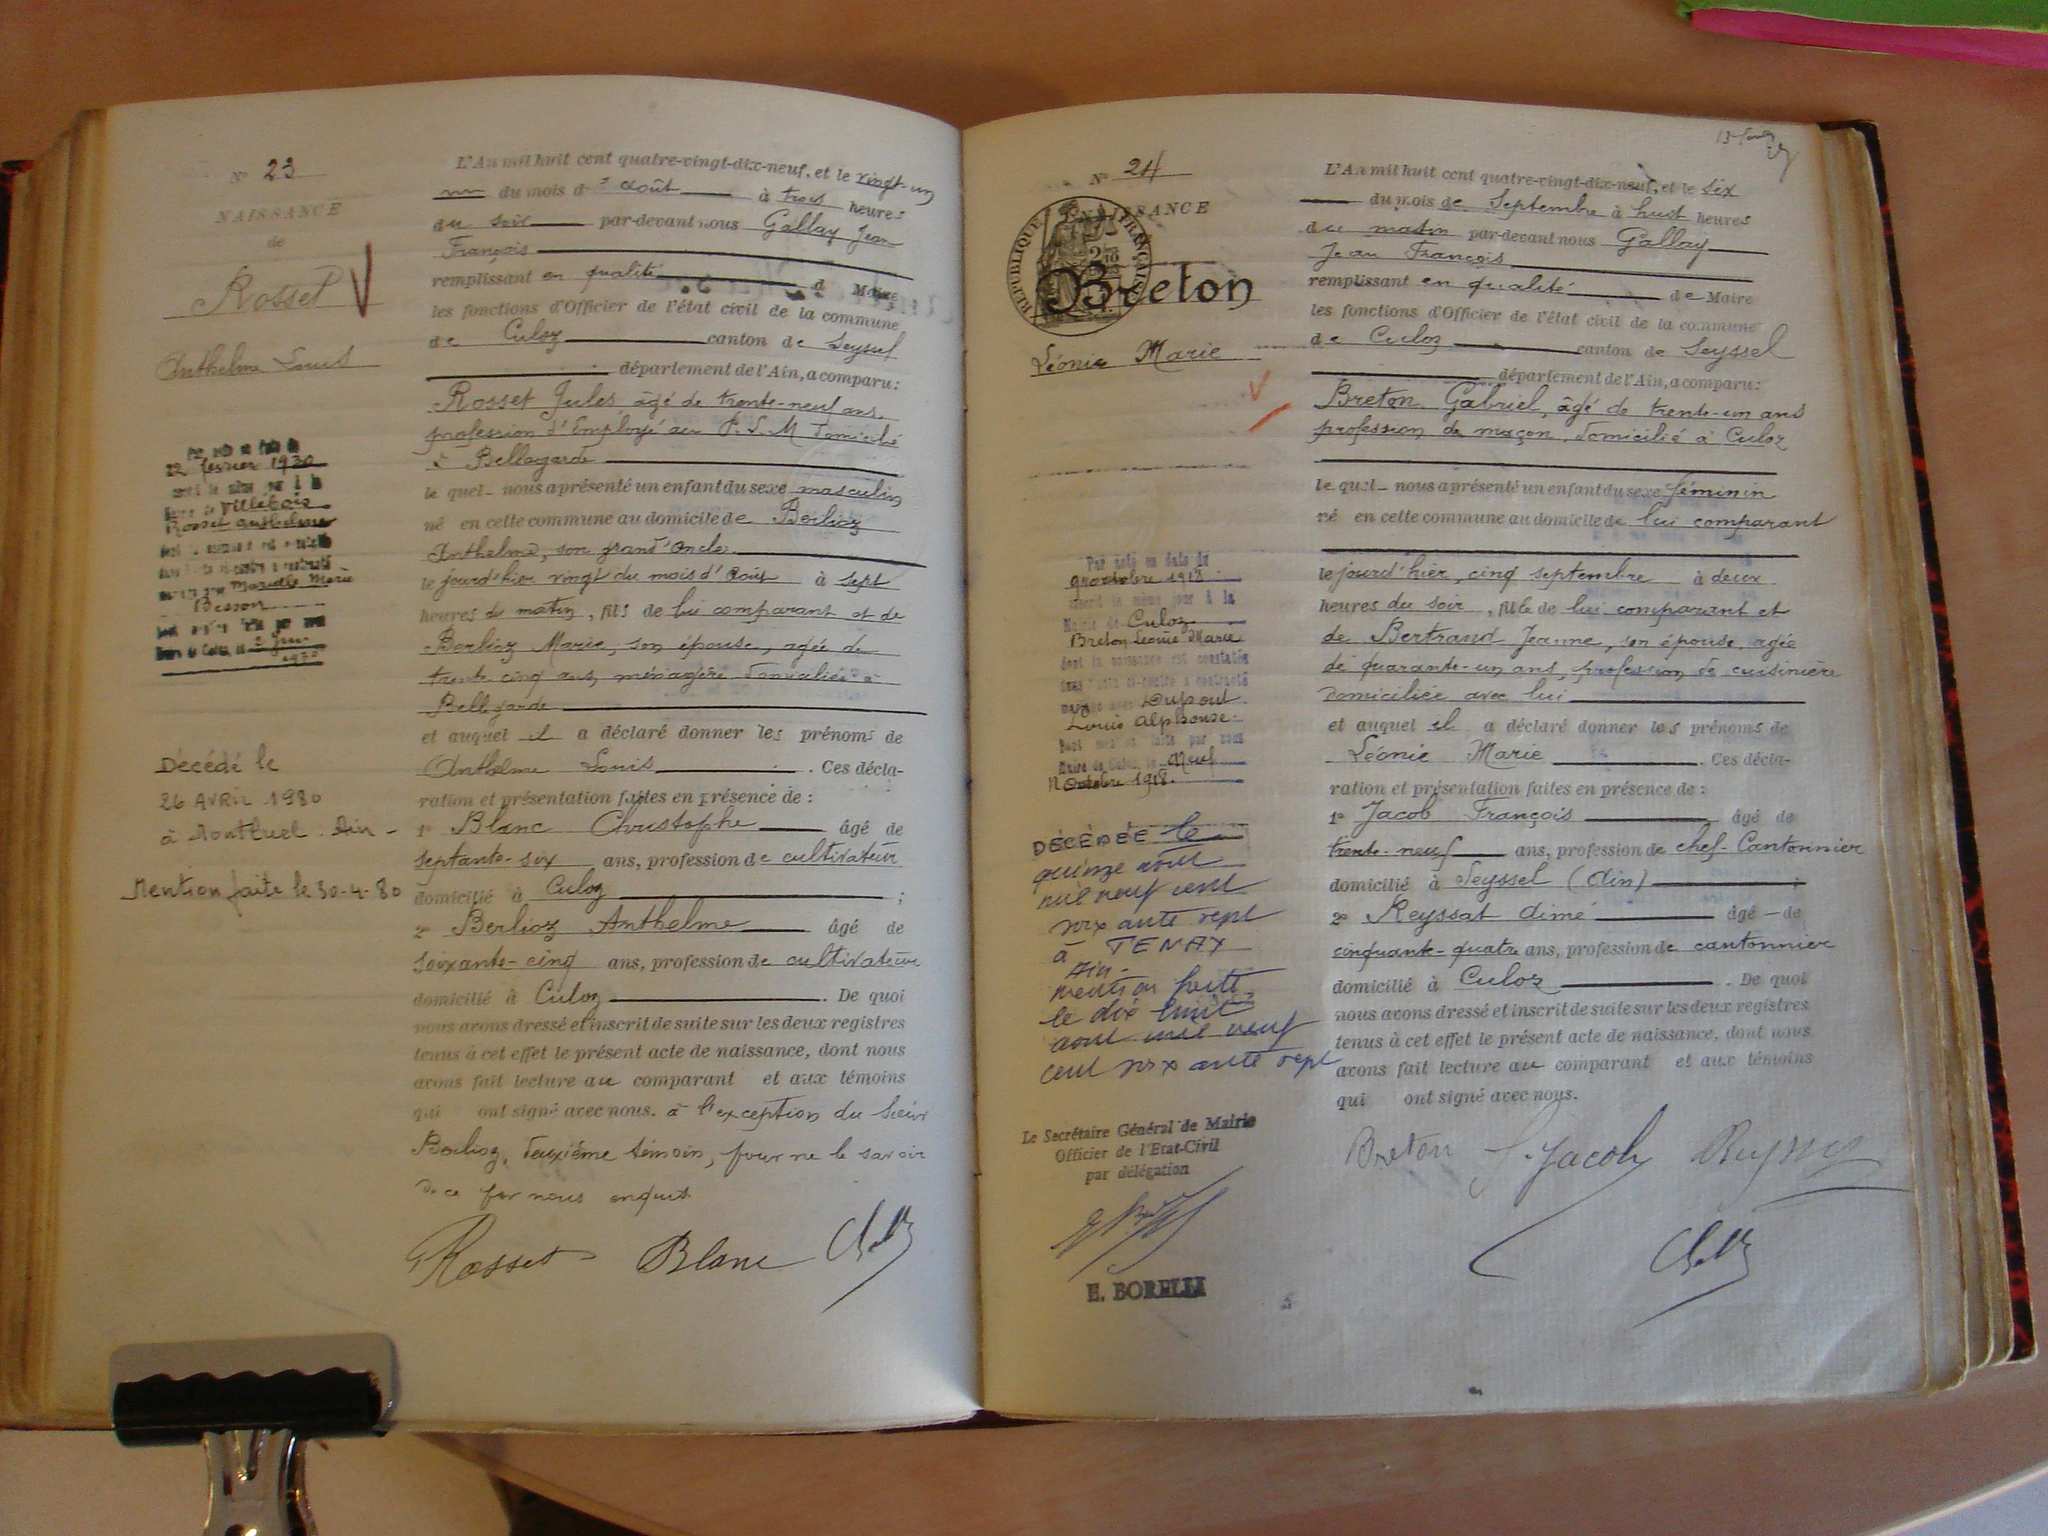 N° 23
NAISSANCE
de
Rosset
Anthelme Louis
22 février 1930
Villebois
Rosset Anthelme
Marcelle Marie
Besson
1930
Décédé le
26 AVRIL 1980
à Montluel Ain -
Mention faite le 30-4-80
L'An mil huit cent quatre-vingt-dix-neuf, et le vingt-un
du mois d'août à trois heures
du soir par-devant nous Gallay Jean
François
remplissant en qualité d Maire
les fonctions d'Officier de l'état civil de la commune
de Culoz canton de Seyssel
département de l'Ain, a comparu:
Rosset Jules âgé de trente-neuf ans,
profession d'Employé au P.L.M domicilié
à Bellegarde
lequel nous a présenté un enfant du sexe masculin
né en cette commune au domicile de Berlioz
Anthelme, son grand'oncle
le jourd'hier vingt du mois d'août à sept
heures du matin, fils de lui comparant et de
Berlioz Marie, son épouse, agée de
trente cinq ans, ménagère domiciliée à
Bellegarde
et auquel il a déclaré donner les prénoms de
Anthelme Louis. Ces décla-
ration et présentation faites en présence de :
1° Blanc Christophe âgé de
septante-six ans, profession de cultivateur
domicilié à Culoz ;
2° Berlioz Anthelme âgé de
soixante-cinq ans, profession de cultivateur
domicilié à Culoz. De quoi
nous avons dressé et inscrit de suite sur les deux registres
tenus à cet effet le présent acte de naissance, dont nous
avons fait lecture au comparant et aux témoins
qui ont signé avec nous. à l'exception du sieur
Berlioz, deuxième témoin, pour ne le savoir
de ce par nous enquis
Rosset Blanc
N° 24
NAISSANCE
RÉPUBLIQUE FRANÇAISE
Breton
Léonie Marie
Par acte en date du
9 octobre 1918
inscrit le même jour à la
Mairie de Culoz
Breton Léonie Marie
dont la naissance est constatée
dans l'acte ci-contre a contracté
mariage avec Dupont
Louis Alphonse
Dont mention faite par nous
Maire de Culoz, le Neuf
Octobre 1918.
DÉCÉDÉE le
quinze août
mil neuf cent
soixante sept
à TENAY
Ain -
mention faite
le dix huit
aout mil neuf
cent soixante sept
Le Secrétaire Général de Mairie
Officier de l'Etat-Civil
par délégation
E. BORELLI
L'An mil huit cent quatre-vingt-dix-neuf, et le six
du mois de Septembre à huit heures
du matin par-devant nous Gallay
Jean François
remplissant en qualité de Maire
les fonctions d'Officier de l'état civil de la commune
de Culoz canton de Seyssel
département de l'Ain, a comparu:
Breton Gabriel, âgé de trente-un ans
profession de maçon, domicilié à Culoz
lequel nous a présenté un enfant du sexe féminin
né en cette commune au domicile de lui comparant
le jourd'hier, cinq septembre à deux
heures du soir, fille de lui comparant et
de Bertrand Jeanne, son épouse, agée
de quarante-un ans, profession de cuisinière
domiciliée avec lui
et auquel il a déclaré donner les prénoms de
Léonie Marie. Ces décla-
ration et présentation faites en présence de :
1° Jacob François âgé de
trente-neuf ans, profession de chef-Cantonnier
domicilié à Seyssel (Ain) ;
2° Reyssat Aimé âgé de
cinquante-quatre ans, profession de cantonnier
domicilié à Culoz. De quoi
nous avons dressé et inscrit de suite sur les deux registres
tenus à cet effet le présent acte de naissance, dont nous
avons fait lecture au comparant et aux témoins
qui ont signé avec nous.
Breton F. Jacob